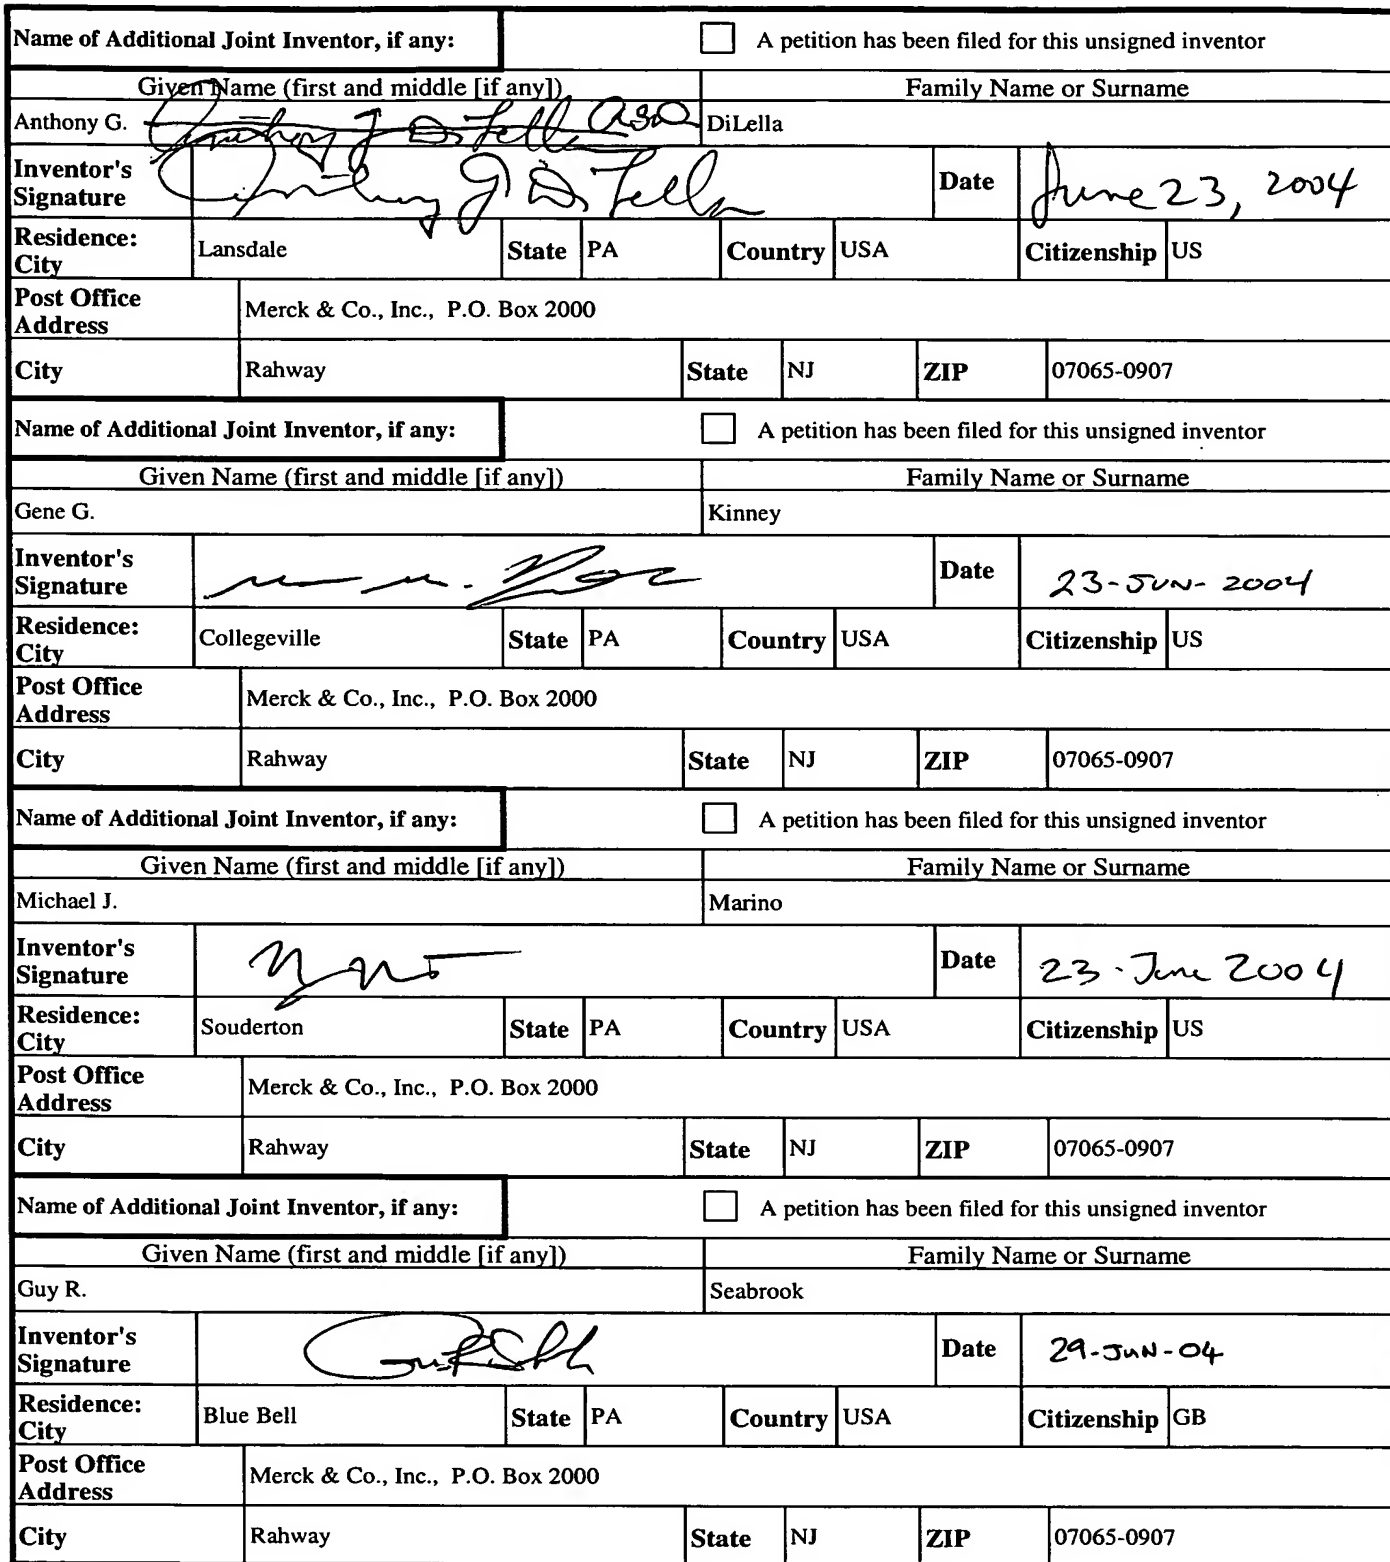 Name of Additional Joint Inventor, if any: A petition has been filed for this unsigned inventor
Given Name (first and middle [if any]) Family Name or Surname
Anthony G. DiLella
Inventor's Signature Date June 23, 2004
Residence: City Lansdale State PA Country USA Citizenship US
Post Office Address Merck & Co., Inc., P.O. Box 2000
City Rahway State NJ ZIP 07065-0907
Name of Additional Joint Inventor, if any: A petition has been filed for this unsigned inventor
Given Name (first and middle [if any]) Family Name or Surname
Gene G. Kinney
Inventor's Signature Date 23-JUN-2004
Residence: City Collegeville State PA Country USA Citizenship US
Post Office Address Merck & Co., Inc., P.O. Box 2000
City Rahway State NJ ZIP 07065-0907
Name of Additional Joint Inventor, if any: A petition has been filed for this unsigned inventor
Given Name (first and middle [if any]) Family Name or Surname
Michael J. Marino
Inventor's Signature Date 23-June 2004
Residence: City Souderton State PA Country USA Citizenship US
Post Office Address Merck & Co., Inc., P.O. Box 2000
City Rahway State NJ ZIP 07065-0907
Name of Additional Joint Inventor, if any: A petition has been filed for this unsigned inventor
Given Name (first and middle [if any]) Family Name or Surname
Guy R. Seabrook
Inventor's Signature Date 29-JUN-04
Residence: City Blue Bell State PA Country USA Citizenship GB
Post Office Address Merck & Co., Inc., P.O. Box 2000
City Rahway State NJ ZIP 07065-0907